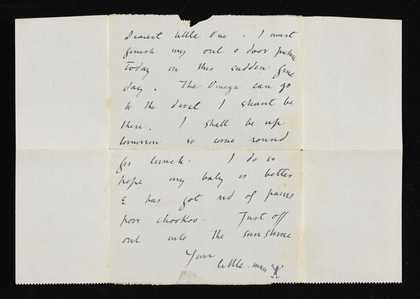 Dearest little One. I must
finish my out o door picture
today on this sudden fine
day. The Omega can go
to the devil I shant be
there. I shall be up
tomorrow so come round
for lunch. I do so
hope my baby is better
& has got rid of pains
poor chookoo. Just off
out into the sunshine
Your
little man